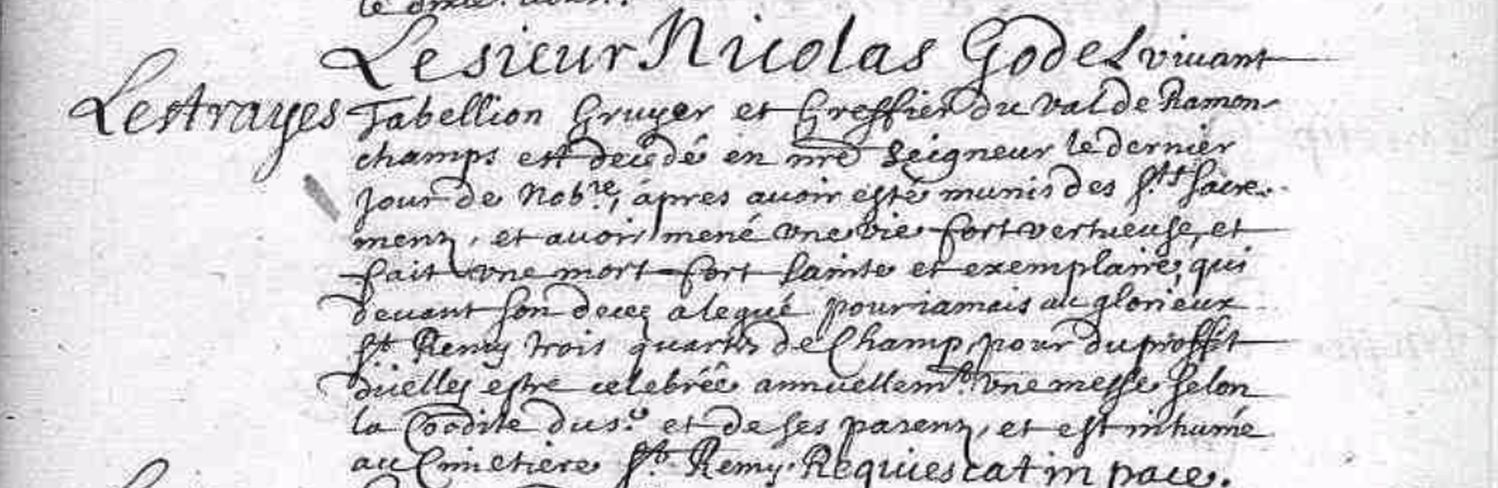 Le sieur Nicolas Godel vivant
Lestrayes
Tabellion Gruyer et Greffier du val de Ramon-
champs est decedé en nre Seigneur le dernier
jour de Nobre, apres avoir esté munis des Sts Sacre-
mentz, et avoir mené une vie fort vertueuse, et
fait une mort fort sainte et exemplaire, qui
devant son decez a legué pour iamais au glorieux
St Remy trois quartz de Champ, pour du proffit
d'icelles estre celebrée annuellemt. une messe selon
la Coôdité dus.r et de ses parentz, et est inhumé
au Cimetiere St Remy. Requiescat in pace.